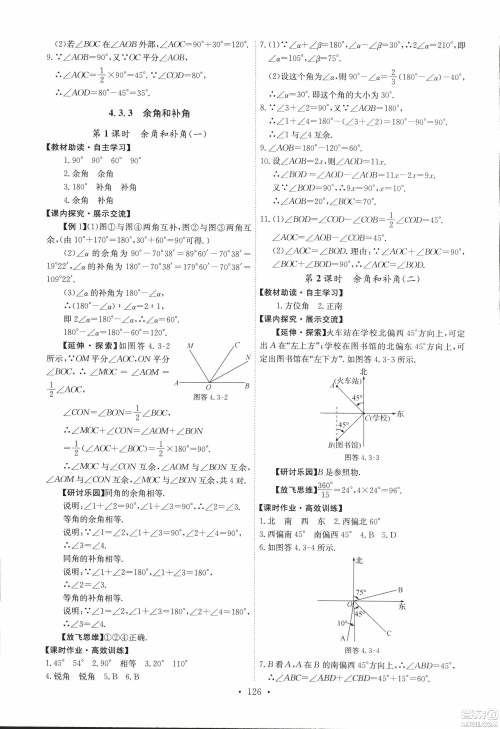 (2)若∠BOC在∠AOB外部,∠AOC=90°+30°=120°.
9.∵∠AOB=90°,又∵OC平分∠AOB,
∴∠AOC=1/2×90°=45°.∵∠COD=80°,
∴∠AOD=80°-45°=35°.
4.3.3 余角和补角
第1课时 余角和补角(一)
【教材助读·自主学习】
1.90° 90° 60° 90°
2.余角 余角
3.180° 补角 补角
4.余角 补角
【课内探究·展示交流】
【例1】图①与图④两角互补,图②与图③两角互余,(由10°+170°=180°,30°+60°=90°可得.)
(2)∠α的余角为90°-70°38′=89°60′-70°38′=19°22′,∠α的补角为180°-70°38′=179°60′-70°38′=109°22′.
(3)∠α的补角为180°-∠α.
∴(180°-∠α):∠α=2:1,
即2∠α=180°-∠α,∴∠α=60°.
180°-∠α=180°-60°=120°.
【延伸·探索】如图答4.3-2
所示,∵OM平分∠AOC,ON平分
∠BOC,∴∠MOC=∠AOM=
1/2∠AOC,
∠CON=∠BON=1/2∠BOC,
∴∠MOC+∠CON=∠AOM+∠BON
=1/2(∠AOC+∠BOC)=1/2×180°=90°.
∴∠MOC与∠CON互余,∠AOM与∠BON互余,
∠AOM与∠CON互余,∠MOC与∠BON互余,共4对.
【研讨乐园】同角的余角相等.
说明:∵∠1+∠2=90°,∠1+∠3=90°,∴∠2=∠3.
等角的余角相等.
说明:∵∠1=∠2,∠1+∠3=90°,∠2+∠4=90°,
∴∠3=∠4.
同角的补角相等.
说明:∵∠1+∠2=180°,∠1+∠3=180°,
∴∠2=∠3.
等角的补角相等.
说明:∵∠1=∠2,∠1+∠3=180°,∠2+∠4=180°,
∴∠3=∠4.
【放飞思维】①②④正确.
【课时作业·高效训练】
1.45° 54° 2.90° 相等 3.20° 110°
4.锐角 钝角 5.B 6.B
C
M
N
A
O
B
图答4.3-2
7.(1)∵∠α+∠β=180°,∠α-∠β=30°,解得∠α=105°,∠β=75°.
8.∵∠3+∠2=90°,∠3+∠4=180°,∠2=∠1,
∴∠1+∠4=180°-90°=90°.
∴∠1与∠4互余.
9.∠AOB=180°-120°=60°.
10.设∠AOB=2x,则∠AOD=11x.
∴∠BOD=∠AOD-∠AOB=9x.
∵∠BOD=90°,∴9x=90°,x=10°.
∴∠AOB=20°,∠BOC=70°.
第2课时 余角和补角(二)
【教材助读·自主学习】
1.方位角 2.正南
【课内探究·展示交流】
【延伸·探索】火车站在学校北偏西45°方向上,可定出A在“左上方”,学校在图书馆的北偏东45°方向上,可定出图书馆在“左下方”.如图答4.3-3所示.
北
A(火车站)
45°
东
C(学校)
45°
B(图书馆)
图答4.3-3
【研讨乐园】B是参照物.
【放飞思维】360°/15=24°,4×24°=96°.
【课时作业·高效训练】
1.北 南 西 东 2.西偏北60°
3.西偏南45° 南偏西45° 4.B 5.D
6.如图答4.3-4所示.
北
75°
B
O
东
45°
10°
A
C
图答4.3-4
7.B看A,A在B的南偏西45°方向上,∴∠ABD=45°,
∴∠ABC=∠ABD+∠CBD=45°+15°=60°.
· 126 ·